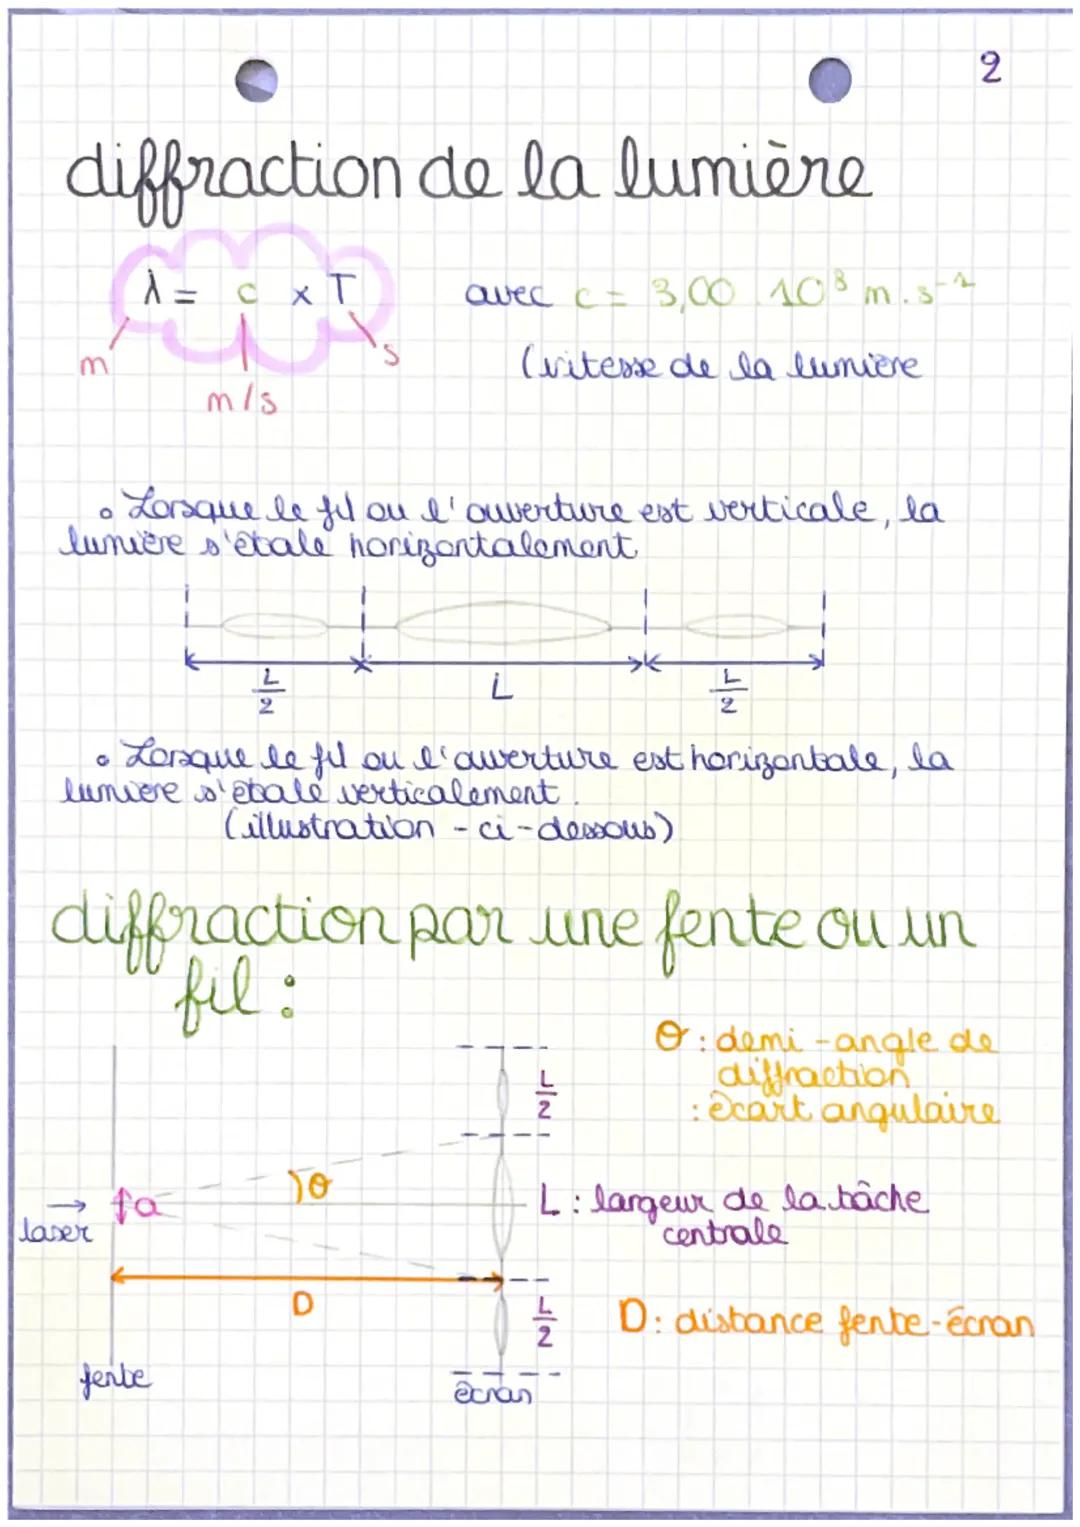 2
diffraction de la lumière
λ = c x T avec c = 3,00 . 10⁸ m.s⁻¹
m m/s s
(vitesse de la lumière
• Lorsque le fil ou l'ouverture est verticale, la
lumière s'étale horizontalement
L/2 L L/2
• Lorsque le fil ou l'ouverture est horizontale, la
lumière s'étale verticalement.
(illustration - ci-dessous)
diffraction par une fente ou un
fil :
θ : demi-angle de
diffraction
: écart angulaire
L/2
θ
a
laser
L : largeur de la tâche
centrale
D
L/2
D : distance fente-écran
fente
écran